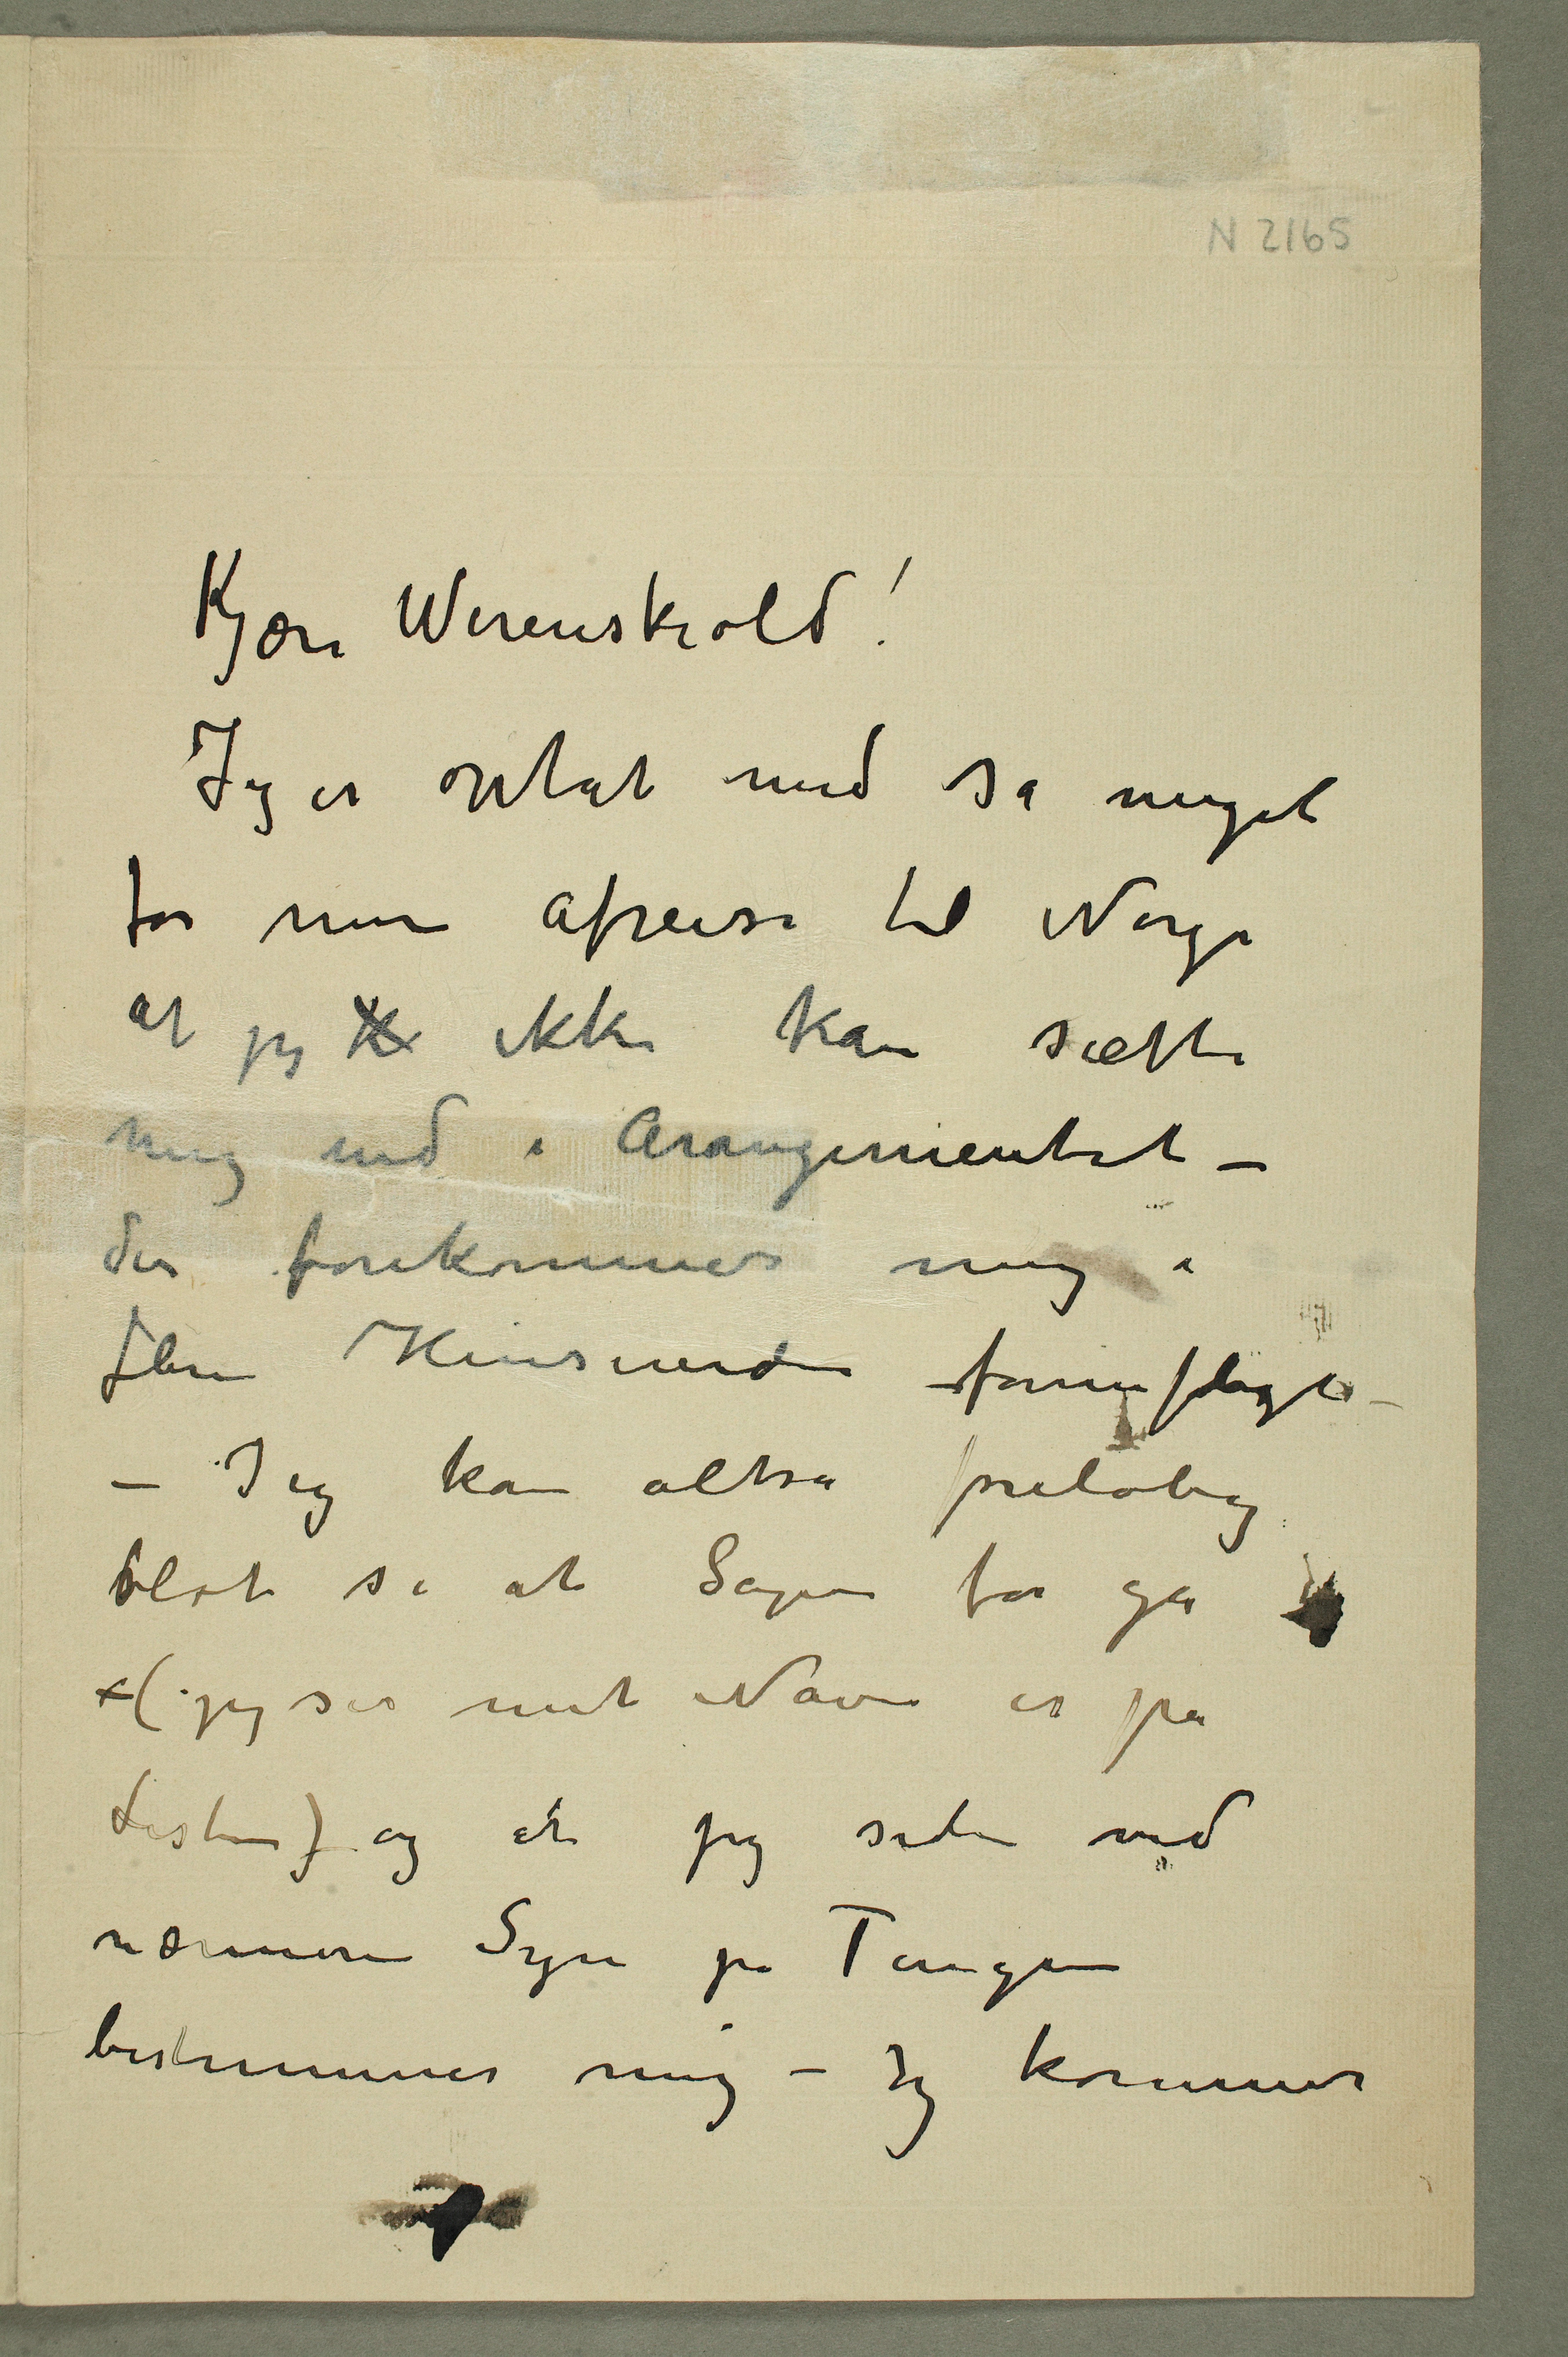 N 2165
Kjære Werenskiold!
Jeg er optat med så meget
før min Afreise til Norge
at jeg ikke kan sætte
mig ind i Arangementet –
der forekommer mig i
flere Hinsender fornuftigt –
– Jeg kan altså foreløbig
blot si at Sagen får gå
(jeg ser mit Navn er på
Listen) og at jeg siden ved
nærmere Syn på Tingen
bestemmer mig – Jeg kommer